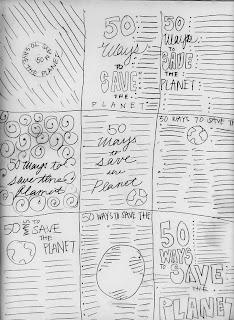 50 WAYS TO SAVE THE PLANET
50
Ways
TO
SAVE
THE
PLANET
50
Ways
TO
SAVE
THE
PLANET
50 Ways to
save the
Planet
50
Ways
to
save
the
Planet
50 WAYS TO SAVE T
50 WAYS TO
SAVE
THE
PLANET
50 WAYS TO SAVE THE
50
WAYS
TO
SAVE
THE
PLANET